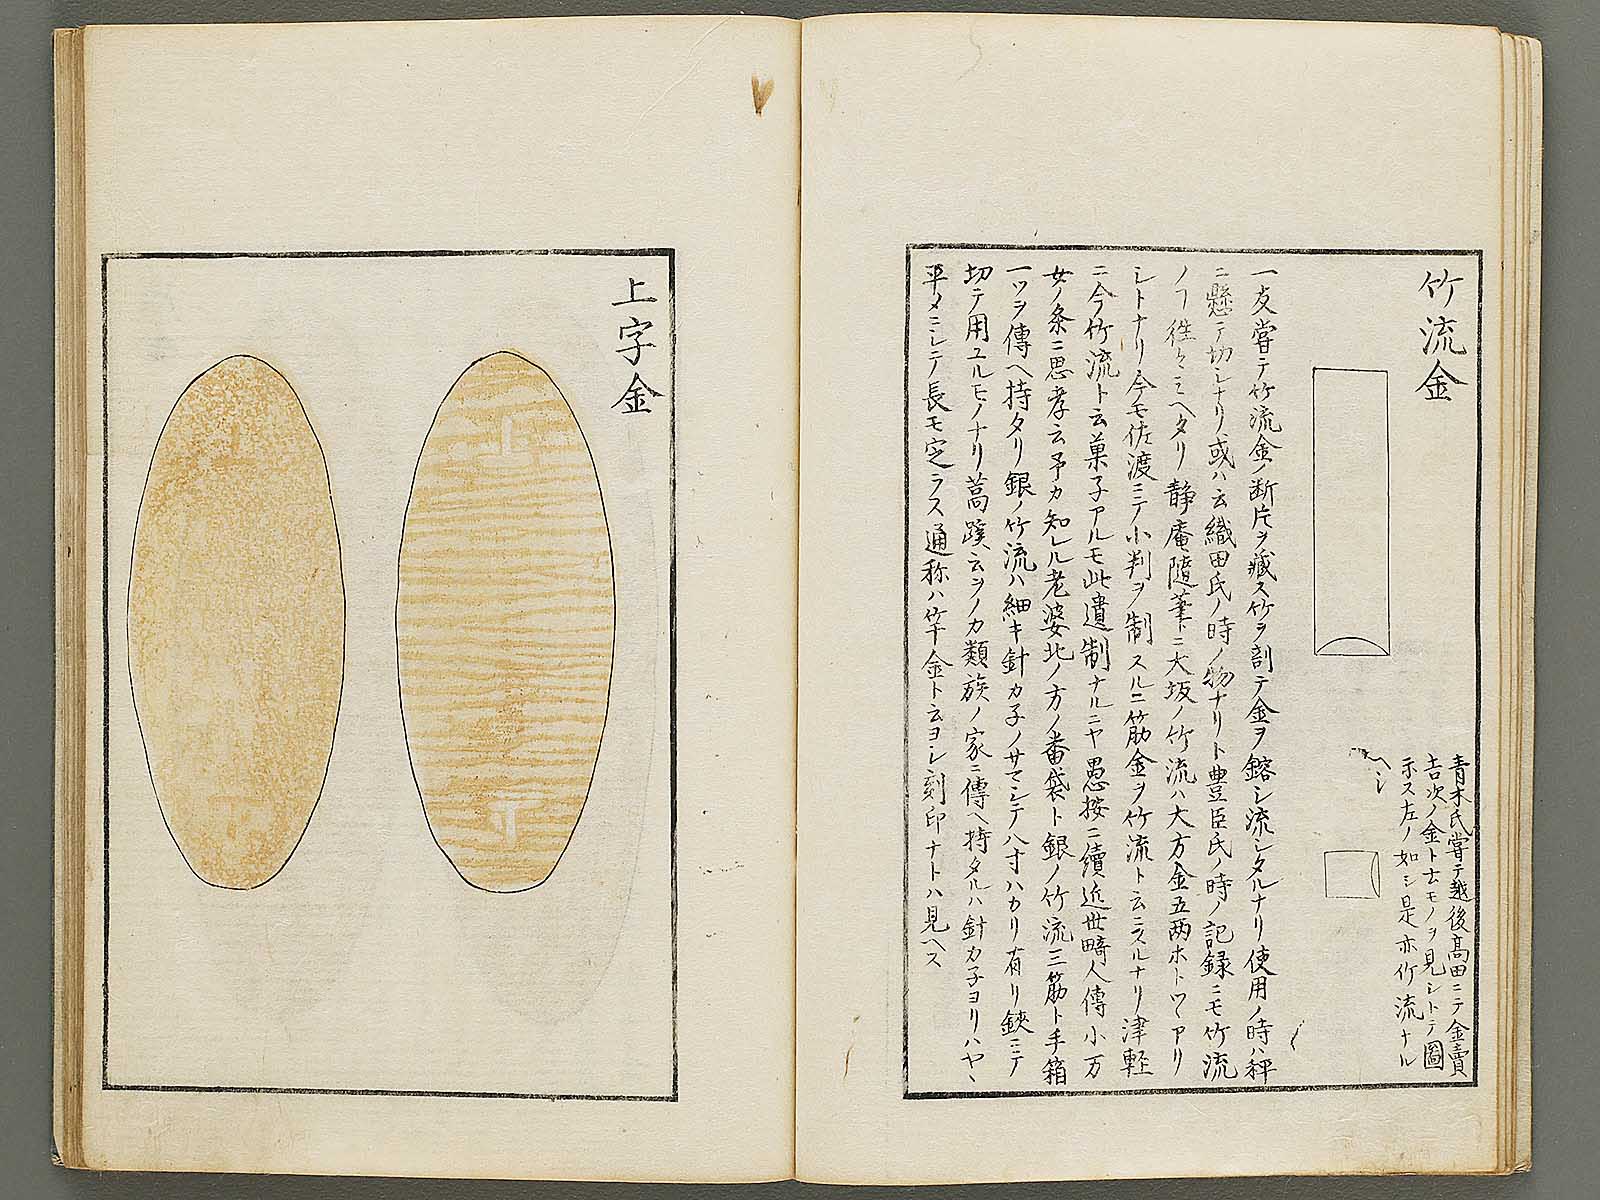 竹流金
青木氏嘗テ越後高田ニテ金賣
吉次ノ金ト云モノヲ見シトテ圖
示ス左ノ如シ是亦竹流ナル
ヘシ
一友嘗テ竹流金ノ断片ヲ藏ス竹ヲ剖テ金ヲ鎔シ流シタルナリ使用ノ時ハ秤
ニ懸テ切シナリ或ハ云織田氏ノ時ノ物ナリト豊臣氏ノ時ノ記録ニモ竹流
ノヿ徃々ミヘタリ静庵隨筆ニ大坂ノ竹流ハ大方金五两ホトツヽアリ
シトナリ今モ佐渡ニテ小判ヲ制スルニ筋金ヲ竹流ト云ニスルナリ津軽
ニ今竹流ト云菓子アルモ此遺制ナルニヤ愚按ニ續近世畸人傳小万
女ノ条ニ思孝云予カ知レル老婆北ノ方ノ番袋ト銀ノ竹流三筋ト手箱
一ツヲ傳ヘ持タリ銀ノ竹流ハ細キ針カ子ノサマシテ八寸ハカリ有リ鋏ニテ
切テ用ユルモノナリ蒿蹊云ヲノカ類族ノ家ニ傳ヘ持タルハ針カ子ヨリハヤヽ
平メニシテ長モ定ラス通称ハ竿金ト云ヨシ刻印ナトハ見ヘス
上字金